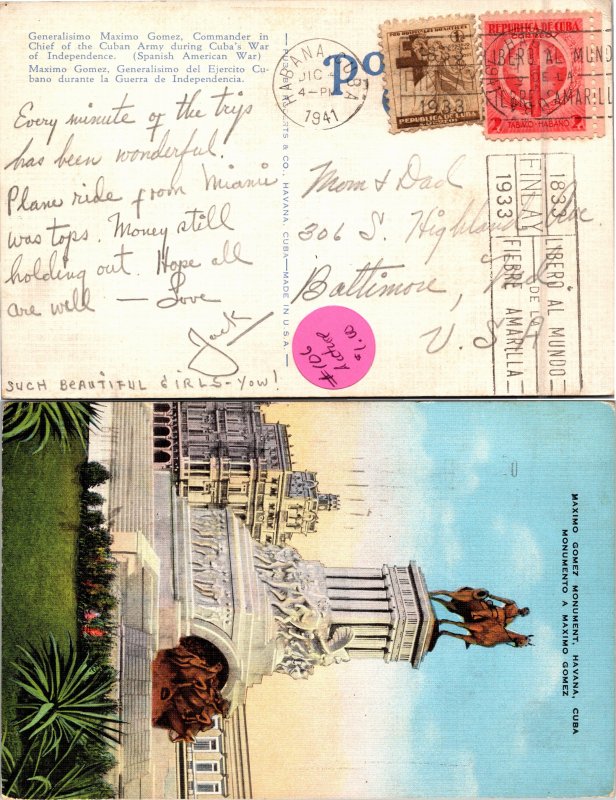 Generalisimo Maximo Gomez, Commander in
Chief of the Cuban Army during Cuba's War
of Independence. (Spanish American War)
Maximo Gomez, Generalisimo del Ejercito Cu-
bano durante la Guerra de Independencia.
Every minute of the trip
has been wonderful.
Plane ride from Miami
was tops. Money still
holding out. Hope all
are well — Love
Jack
SUCH BEAUTIFUL GIRLS-YOW!
& CO., HAVANA, CUBA—MADE IN U.S.A.
HABANA, CUBA
DIC
4-PM
1941
Po
1933
REPUBLICA DE CUBA
REPUBLICA DE CUBA
LIBERO AL MUNDO
DE LA
FIEBRE AMARILLA
TABACO HABANO
Mom & Dad
306 S. Highland Ave.
Baltimore, Md
U.S.A
1833 LIBERO AL MUNDO
FINLAY DE LA
1933 FIEBRE AMARILLA
#106
1.00
MAXIMO GOMEZ MONUMENT, HAVANA, CUBA
MONUMENTO A MAXIMO GOMEZ